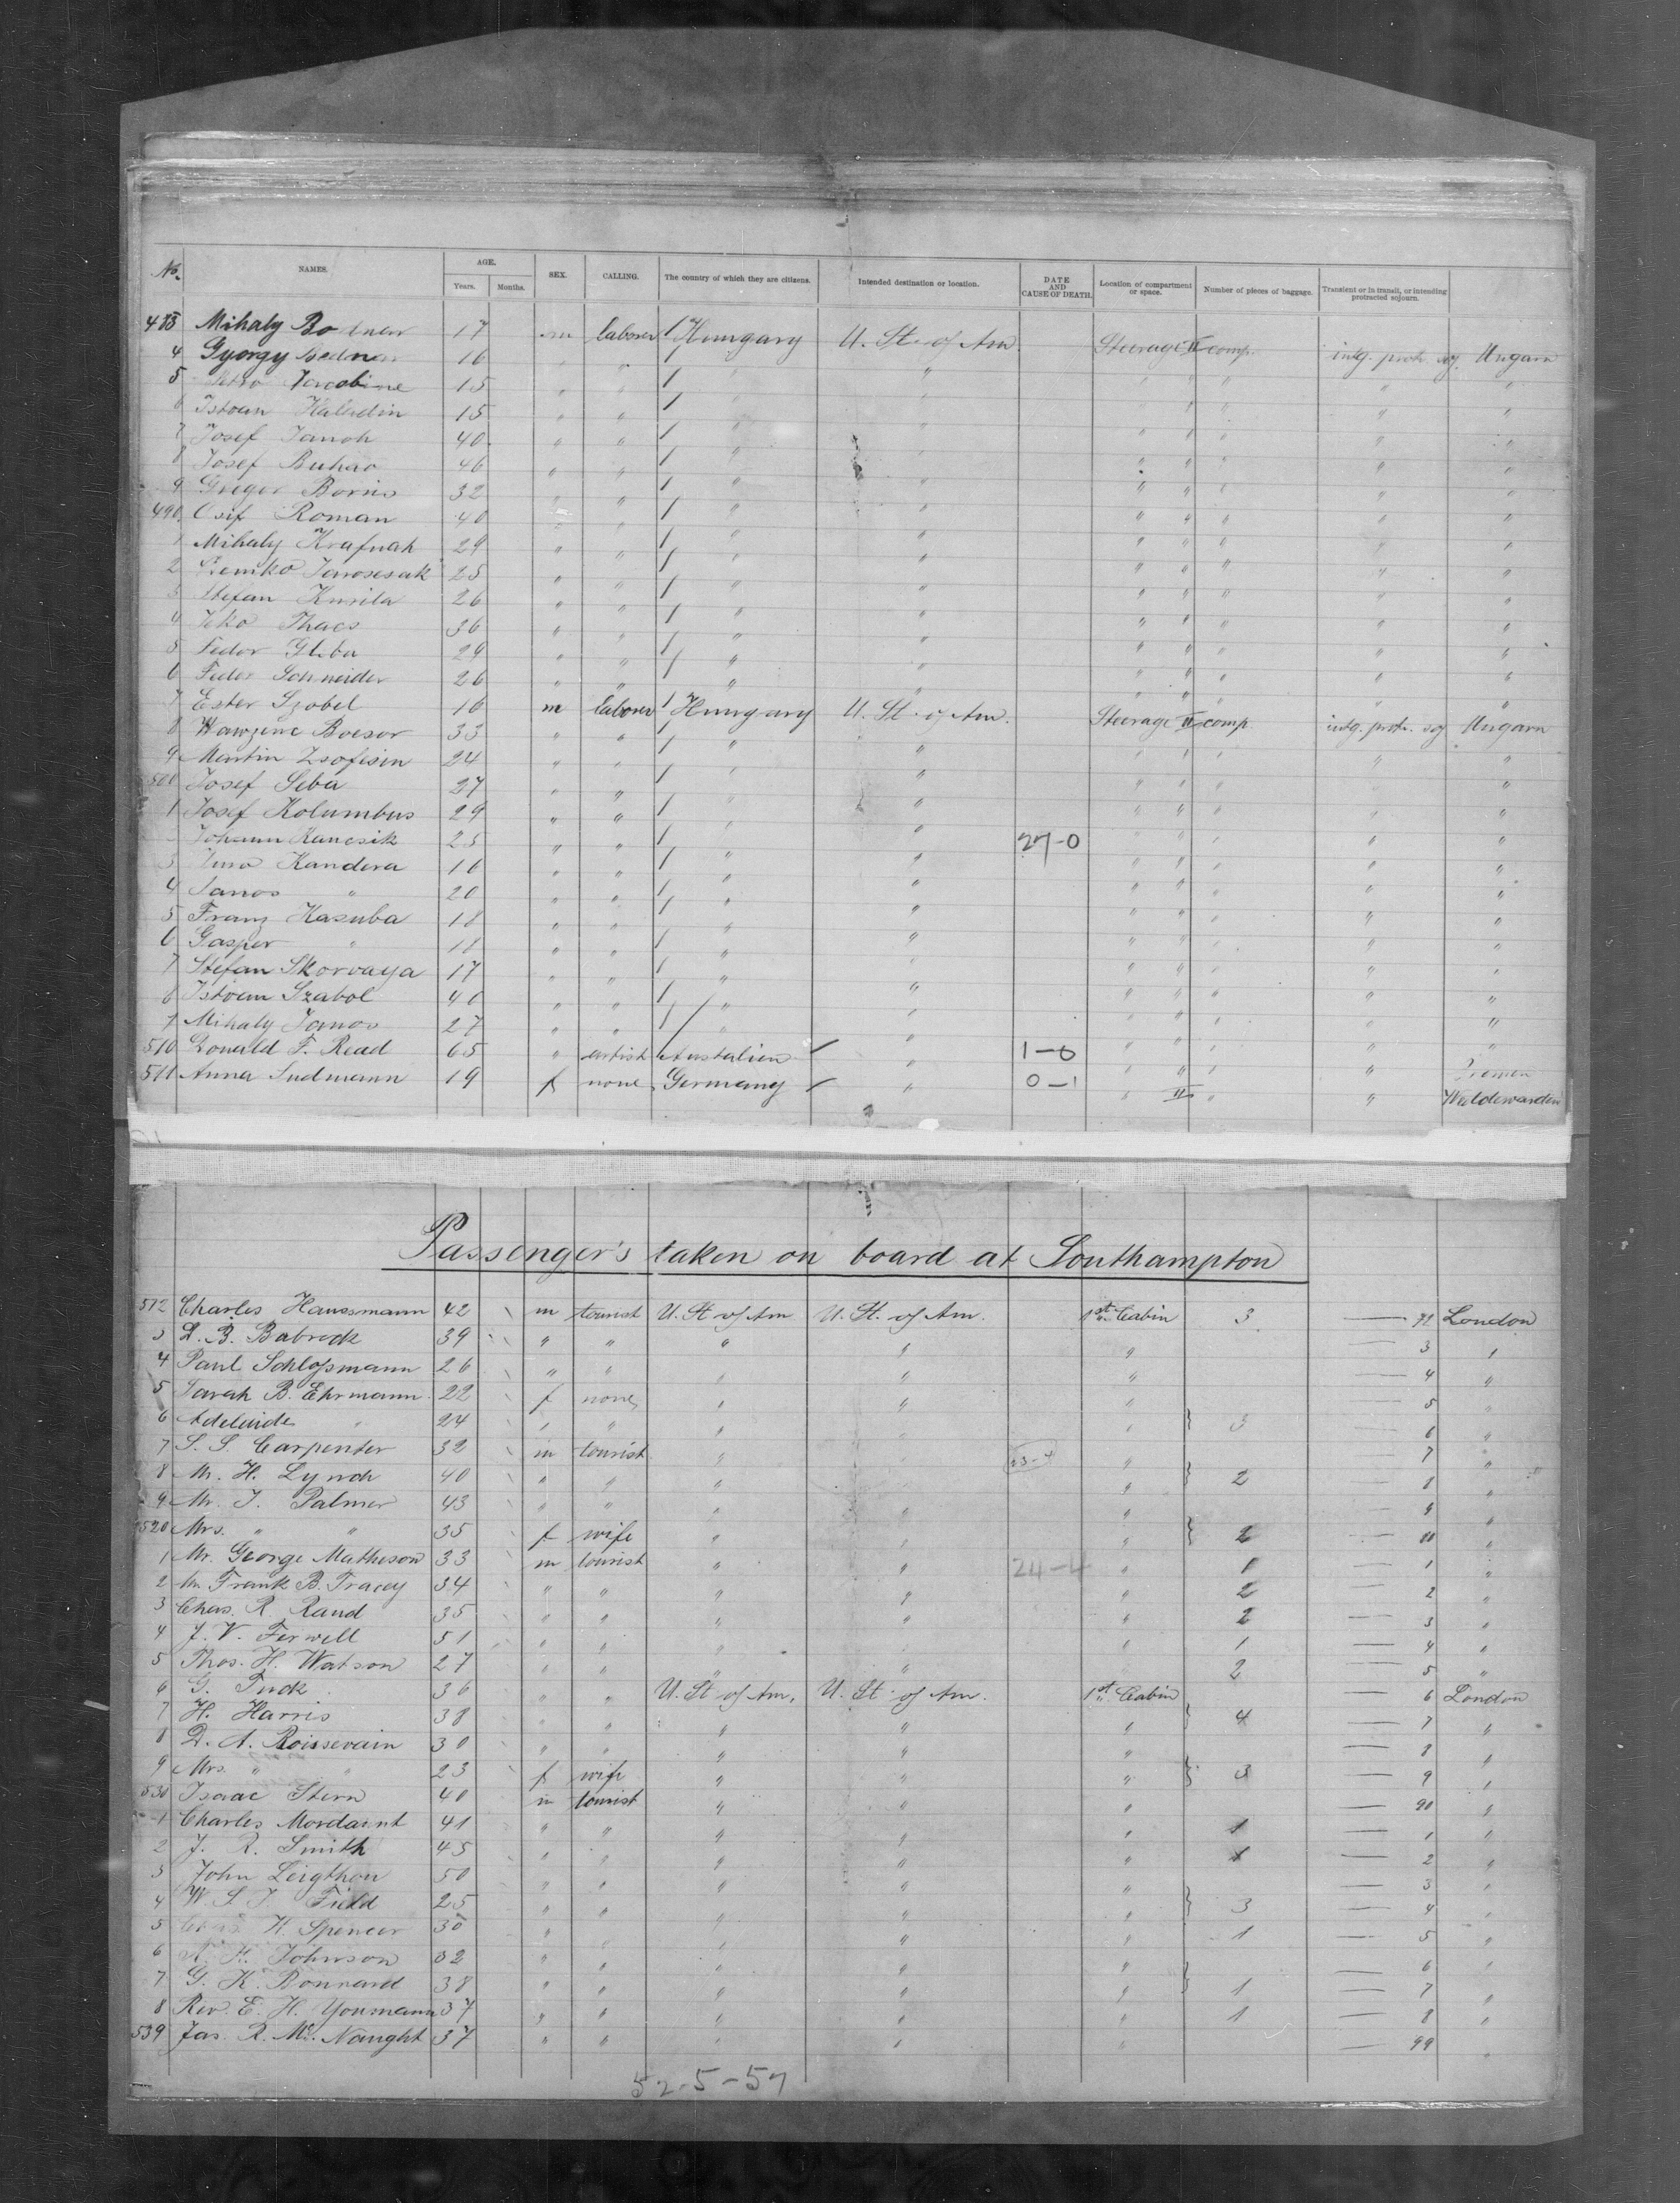 No. NAMES. AGE. Years. Months. SEX. CALLING. The country of which they are citizens. Intended destination or location. DATE AND CAUSE OF DEATH. Location of compartment or space. Number of pieces of baggage. Transient or in transit, or intending protracted sojourn.
483 Mihaly 17 m laborer 1 Hungary U. St. of Am. Steerage II comp. intg. protr. soj. Ungarn
4 Gyorgy Bednar 16 " " 1 " " " " " " "
5 15 " " 1 " " " " " " "
6 Istvan Haludin 15 " " 1 " " " " " " "
7 Josef Janoh 40 " " 1 " " " " " " "
8 Josef Buhar 46 " " 1 " " " " " " "
9 Gregor Borris 32 " " 1 " " " " " " "
490 Osif Roman 40 " " 1 " " " " " " "
1 Mihaly Krafnah 29 " " 1 " " " " " " "
2 25 " " 1 " " " " " " "
3 Stefan Kurila 26 " " 1 " " " " " " "
4 Thacs 36 " " 1 " " " " " " "
5 Fedor Gleba 29 " " 1 " " " " " " "
6 Feder Schneider 26 " " " " " " " " "
7 Ester Szobel 16 m laborer 1 Hungary U. St. of Am. Steerage II comp. intg. protr. soj Ungarn
8 Wawzenc Boesor 33 " " 1 " " " " " " "
9 Martin Zsofisin 24 " " 1 " " " " " " "
500 Josef Seba 27 " " 1 " " " " " " "
1 Josef Kolumbus 29 " " 1 " " " " " " "
Johann Kancsik 25 " " 1 " " 27-0 " " " " "
3 Juro Kandera 16 " " 1 " " " " " " "
4 Janos " 20 " " 1 " " " " " " "
5 Franz Kasuba 18 " " 1 " " " " " " "
6 Gasper " 18 " " 1 " " " " " " "
7 Stefan Skorvaya 17 " " 1 " " " " " " "
8 Istvan Szabol 40 " " 1 " " " " " " "
9 Mihaly Janos 27 " " 1 " " " " " " "
510 Donald F. Read 65 " artist Australien " 1-0 " " " " Bremen
511 Anna Sudmann 19 f none Germany " 0-1 " II " " Waldewarden
Passenger's taken on board at Southampton
512 Charles Haussmann 42 m tourist U. St of Am U. St. of Am. 1st Cabin 3 — 72 London
3 D. B. Babcock 39 " " " " " — 3 "
4 Paul Schlossmann 26 " " " " " — 4 "
5 Sarah B. Ehrmann 22 f none " " " — 5 "
6 Adelaide " 24 " " " " " } 3 — 6 "
7 S. S. Carpenter 32 m tourist " 23-4 " — 7 "
8 Mr. H. Lynch 40 " " " " } 2 — 8 "
9 Mr. J. Palmer 43 " " " " " — 9 "
520 Mrs. " " 35 f wife " " " } 2 — 80 "
1 Mr. George Matheson 33 m tourist " " 24-4 " 1 — 1 "
2 Mr. Frank B. Tracey 34 " " " " " 2 — 2 "
3 Chas. R. Rand 35 " " " " " 2 — 3 "
4 J. V. Ferwell 51 " " " " " 1 — 4 "
5 Thos. H. Watson 27 " " " " 2 — 5 "
6 G. Tuck 36 " " U. St of Am. U. St. of Am. 1st Cabin — 6 London
7 H. Harris 38 " " " " " } 4 — 7 "
8 D. A. Boissevain 30 " " " " " — 8 "
9 Mrs. " " 23 f wife " " " } 3 — 9 "
530 Isaac Stern 40 m tourist " " " — 90 "
1 Charles Mordaunt 41 " " " " " 1 — 1 "
2 J. R. Smith 45 " " " " " 1 — 2 "
3 John Leigthon 50 " " " " " — 3 "
4 W. S. J. Field 25 " " " " " } 3 — 4 "
5 Chas H. Spencer 30 " " " " " 1 — 5 "
6 H. Johnson 32 " " " " " — 6 "
7 G. K. Bonnard 38 " " " " " } 1 — 7 "
8 Rev. E. H. Youmann 37 " " " " " 1 — 8 "
539 Jas. R. Mc. Naught 37 " " " " " — 99 "
52-5-57